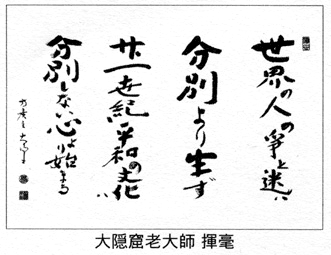 世界の人の争と迷い
分別より生ず
廿一世紀平和の文化は
分別しない心より始まる
大隠窟老大師 揮毫